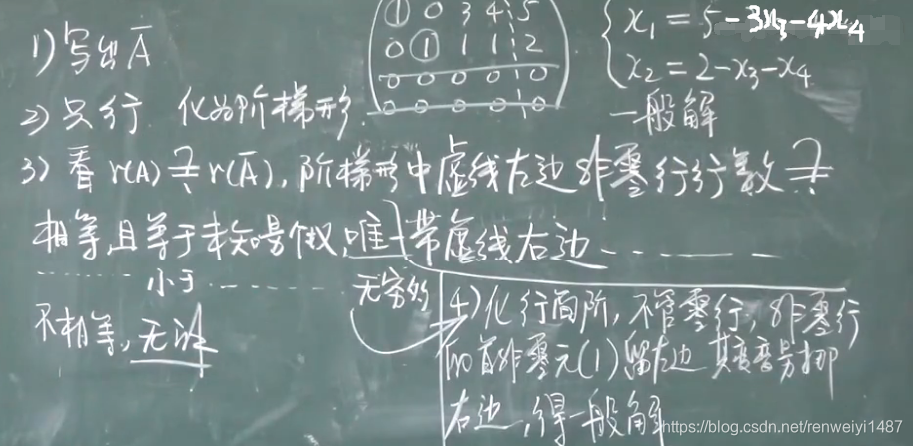 ① 0 3 4 5
0 ① 1 1 2
0 0 0 0 0
0 0 0 0 0
x₁ = 5 - 3x₃ - 4x₄
x₂ = 2 - x₃ - x₄
一般解
1) 写出 Ā
2) 只行 化为阶梯形.
3) 看 r(A) ≟ r(Ā), 阶梯形中虚线左边非零行行数 ≟
相等,且等于未知量个数,唯一 带虚线右边 ------
------ 小于 ------ 无穷多
不相等, 无解
4) 化行简阶, 不管零行, 非零行
的首非零元(1)留左边 其变号挪
右边, 得一般解
https://blog.csdn.net/renweiyi1487